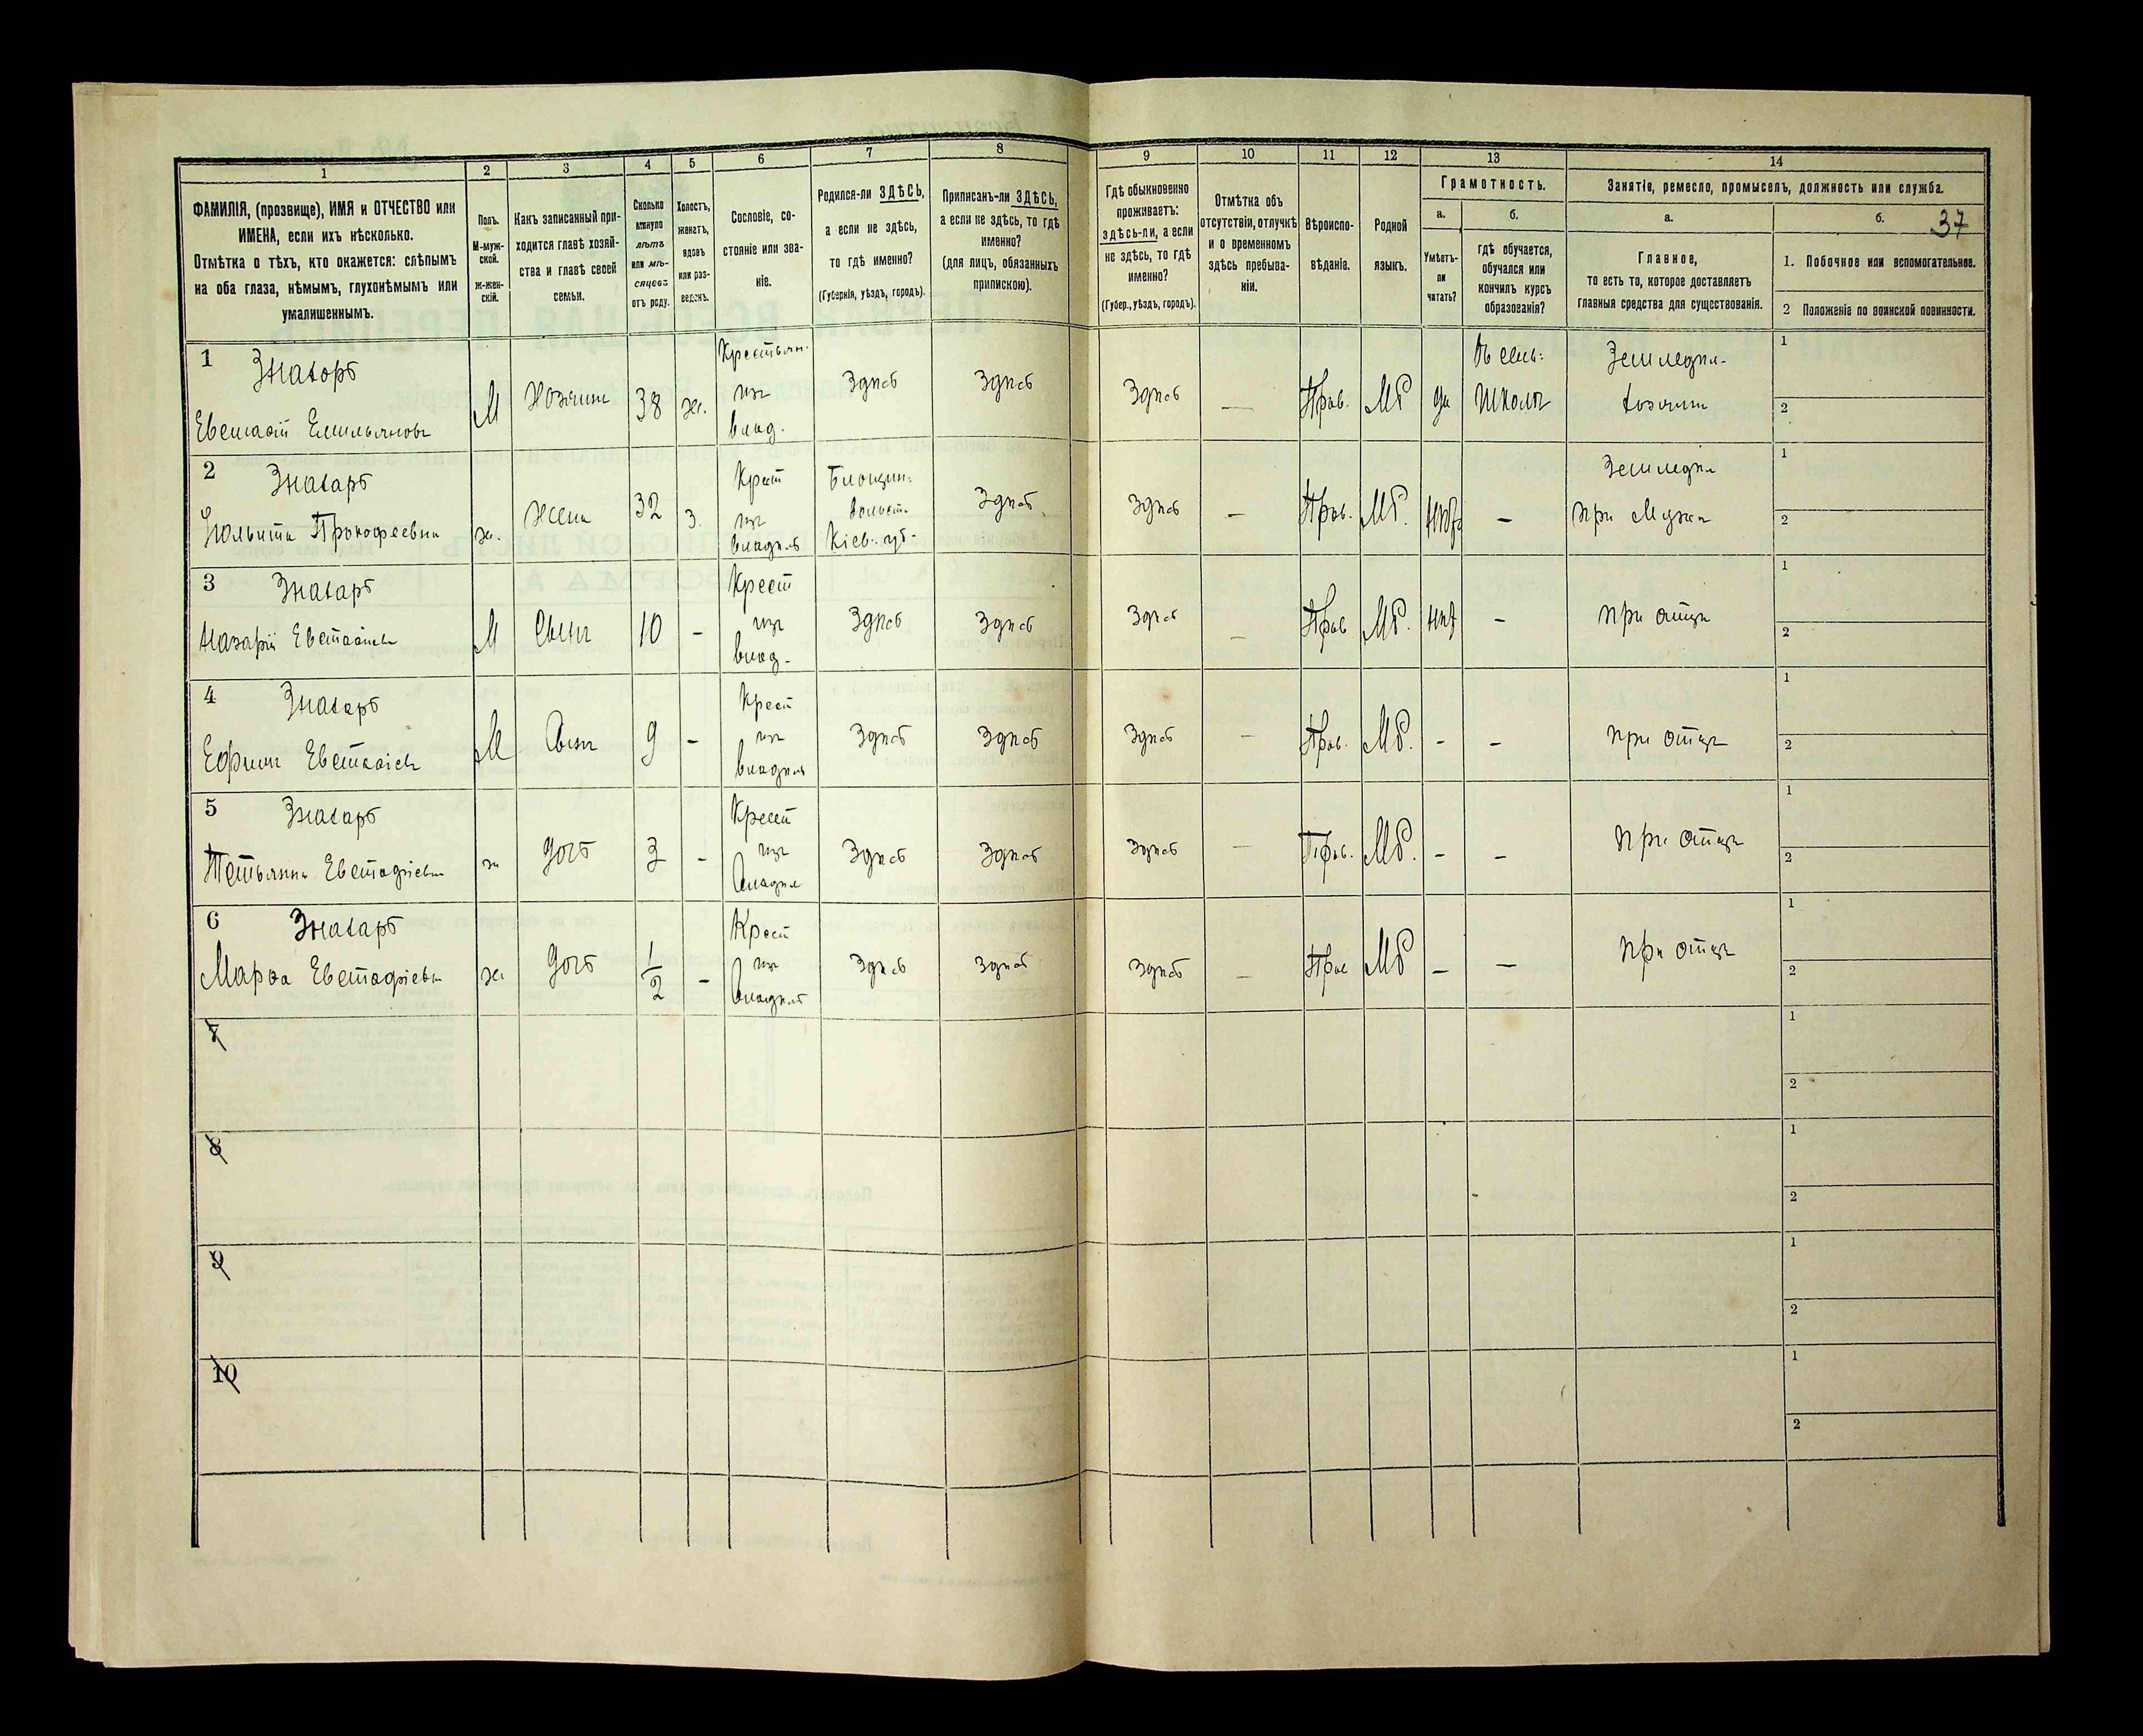 1 2 3 4 5 6 7 8 9 10 11 12 13 14
ФАМИЛІЯ, (прозвище), ИМЯ и ОТЧЕСТВО или
ИМЕНА, если ихъ нѣсколько.
Отмѣтка о тѣхъ, кто окажется: слѣпымъ
на оба глаза, нѣмымъ, глухонѣмымъ или
умалишеннымъ.
Полъ.
М-муж-
ской.
ж-жен-
скій.
Какъ записанный при-
ходится главѣ хозяй-
ства и главѣ своей
семьи.
Сколько
минуло
лѣтъ
или мѣ-
сяцевъ
отъ роду.
Холостъ,
женатъ,
вдовъ
или раз-
веденъ.
Сословіе, со-
стояніе или зва-
ніе.
Родился-ли ЗДѢСЬ,
а если не здѣсь,
то гдѣ именно?
(Губернія, уѣздъ, городъ).
Приписанъ-ли ЗДѢСЬ,
а если не здѣсь, то гдѣ
именно?
(для лицъ, обязанныхъ
припискою).
Гдѣ обыкновенно
проживаетъ:
здѣсь-ли, а если
не здѣсь, то гдѣ
именно?
(Губер., уѣздъ, городъ).
Отмѣтка объ
отсутствіи, отлучкѣ
и о временномъ
здѣсь пребыва-
ніи.
Вѣроиспо-
вѣданіе.
Родной
языкъ.
Грамотность.
а.
Умѣетъ-
ли
читать?
б.
гдѣ обучается,
обучался или
кончилъ курсъ
образованія?
Занятіе, ремесло, промыселъ, должность или служба.
а.
Главное,
то есть то, которое доставляетъ
главныя средства для существованія.
б.
37
1. Побочное или вспомогательное.
2 Положеніе по воинской повинности.
1
Знахоръ
Емельяновъ
М
Хозяинъ
38
ж.
Крестьян.
изъ
влад.
Здѣсь
Здѣсь
Здѣсь
—
Прав.
Мр
да
школѣ
1
2
2
Знахаръ
Прокофеевна
ж.
Жена
32
З.
Крест
изъ
владѣл
Кіев. губ.
Здѣсь
Здѣсь
—
Прав.
Мр.
—
при Мужѣ
1
2
3
Знахаръ
Назарій
М
Сынъ
10
-
Крест
изъ
влад.
Здѣсь
Здѣсь
Здѣсь
—
Прав
Мр.
-
при отцѣ
1
2
4
Знахаръ
Ефимъ
М
Сынъ
9
-
Крест
изъ
владѣл
Здѣсь
Здѣсь
Здѣсь
—
Прав.
Мр.
-
-
при отцѣ
1
2
5
Знахаръ
Тетьянна Евстафіева
ж
дочь
3
-
Крест
изъ
владѣл
Здѣсь
Здѣсь
Здѣсь
—
Прав.
Мр.
-
-
при отцѣ
1
2
6
Знахаръ
Марѳа Евстафіева
ж
дочь
1/2
-
Крест
изъ
владѣл
Здѣсь
Здѣсь
Здѣсь
—
Прав
Мр
-
—
при отцѣ
1
2
7
1
2
8
1
2
9
1
2
10
1
2